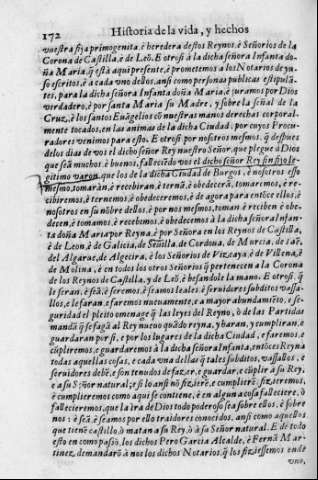 172 Historia de la vida, y hechos
vuestra fija primogenita è heredera destos Reynos, è Señorios de la
Corona de Castilla, è de Leõ. E otrosi à la dicha señora Infanta do-
ña Maria, q̃ està aqui presente, è prometemos a los Notarios de yu-
so escritos, è a cada vno dellos, ansi como personas publicas estipulã-
tes, para la dicha señora Infanta doña Maria, è juramos por Dios
verdadero, è por santa Maria su Madre, y sobre la señal de la
Cruz, è los santos Euãgelios cõ nuestras manos derechas corporal-
mente tocados, en las animas de la dicha Ciudad, por cuyos Procu-
radores venimos para esto. E otrosi por nosotros mesmos, q̃ despues
de los dias de vos el dicho señor Rey nuestro Señor, que plegue à Dios
que seã muchos, è buenos, fallecìdo vos el dicho señor Rey sin fijo le-
gitimo varon, que los de la dicha Ciudad de Burgos, è nosotros esso
mesmo, tomaràn, è recibiran, è ternã, è obedecerã, tomaremos, è re-
cibiremos, è ternemos, è obedeceremos, è de agora para entõce ellos, è
nosotros en su nõbre dellos, è por nos mesmos, toman è reciben è obe-
decen, è tomamos, è recebimos, è obedecemos à la dicha señora Infan-
ta doña Maria por Reyna, è por Señora en los Reynos de Castilla,
è de Leon, è de Galicia, de Seuilla, de Cordoua, de Murcia, de Iaẽ,
del Algarue, de Algecira, è los Señorios de Vizcaya, è de Villena, è
de Molina, è en todos los otros Señorios q̃ pertenecen a la Corona
de los Reynos de Castilla, y de Leõ, è besandole la mano. E otrosi, q̃
le seràs, è fsà, è seremos, è seamos leales, è seruidores subditos vassa-
llos, e le faran, e faremos nueuamente, e a mayor abundamiẽto, e se-
guridad el pleito omenage q̃ las leyes del Reyno, ò de las Partidas
mandã q̃ se faga al Rey nueuo quãdo reyna, y haran, y cumpliran, e
guardaran por si, e por los lugares de la dicha Ciudad, e faremos, e
cũpliremos, e guardaremos à la dicha señora Infanta, entõces Reyna
todas aquellas cosas, e cada vna dellas q̃ tales subditos, vassallos, e
seruidores debẽ, e son tenudos de fazer, e guardar, e cũplir à su Rey,
e a su Señor natural; e si lo ansi nõ fizierẽ, e cumplierẽ, fizieremos,
è cumplieremos como aqui se contiene, è en alguna cosa falleciere, ò
fallecieremos, que la ira de Dios todo poderoso sea sobre ellos, è sobre
nos: è seã, è seamos por ello traidores conocidos, ansi como aquellos
que tiene castillo, ò matan a su Rey, ò à su Señor natural. E de todo
esto en como passò, los dichos Pero Garcia Alcalde, è Fernã Mar-
tinez, demandarõ à nos los dichos Notarios, q̃ los fiziessemos ende
vno,